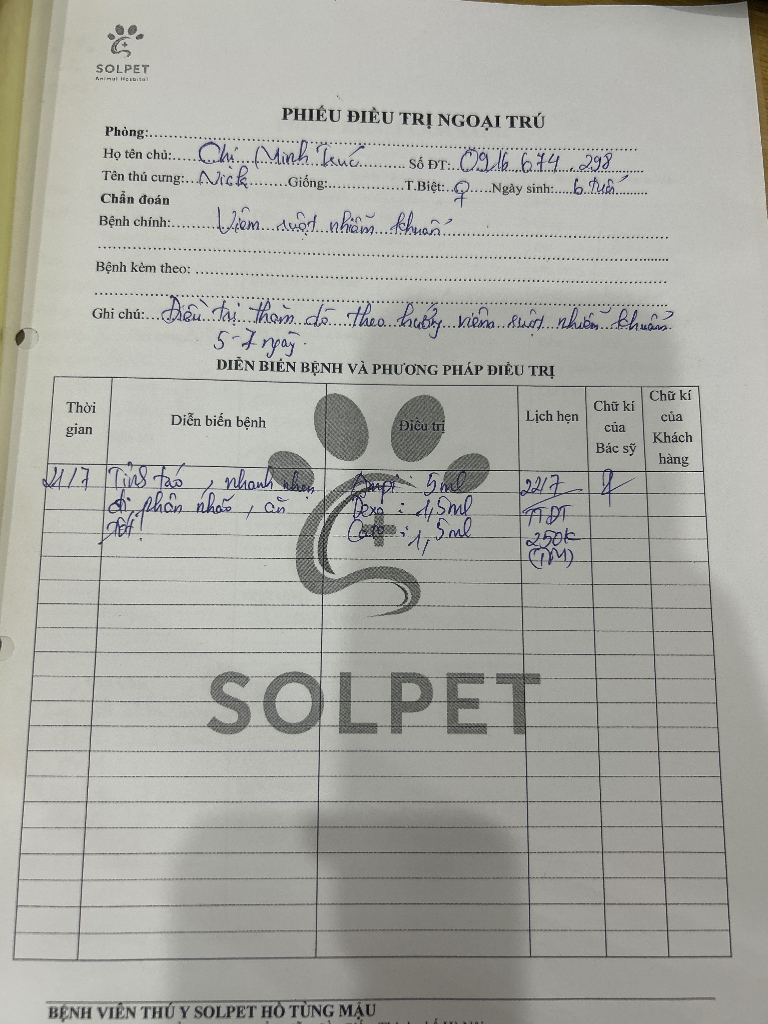 SOLPET
Animal Hospital
PHIẾU ĐIỀU TRỊ NGOẠI TRÚ
Phòng:
Họ tên chủ: Chị Minh Trúc Số ĐT: 0916.674.298
Tên thú cưng: Nick Giống: T.Biệt: ♀ Ngày sinh: 6 tuổi
Chẩn đoán
Bệnh chính: Viêm ruột nhiễm khuẩn
Bệnh kèm theo:
Ghi chú: Điều trị thăm dò theo hướng viêm ruột nhiễm khuẩn
5-7 ngày.
DIỄN BIẾN BỆNH VÀ PHƯƠNG PHÁP ĐIỀU TRỊ
Thời gian Diễn biến bệnh Điều trị Lịch hẹn Chữ kí của Bác sỹ Chữ kí của Khách hàng
21/7 Tỉnh táo, nhanh nhẹn Ampi: 5ml 22/7
đi phân nhão, ăn Dexa: 1,5ml TTĐT
tốt! : 1,5ml 250k
(TM)
SOLPET
BỆNH VIỆN THÚ Y SOLPET HỒ TÙNG MẬU